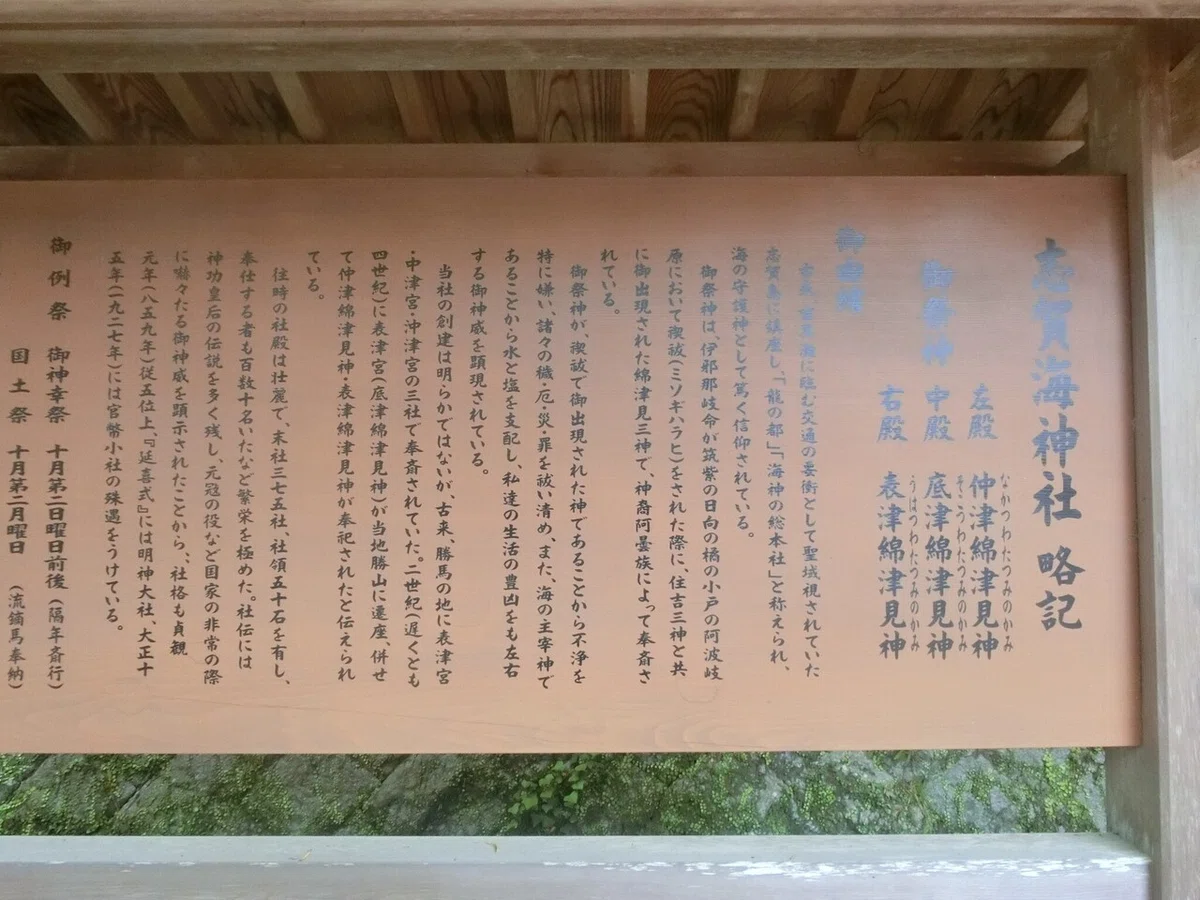 志賀海神社 略記
御祭神
左殿 仲津綿津見神
なかつわたつみのかみ
中殿 底津綿津見神
そこつわたつみのかみ
右殿 表津綿津見神
うはつわたつみのかみ
御由緒
古来、玄界灘に臨む交通の要衝として聖域視されていた
志賀島に鎮座し、「龍の都」「海神の総本社」と称えられ、
海の守護神として篤く信仰されている。
御祭神は、伊邪那岐命が筑紫の日向の橘の小戸の阿波岐
原において禊祓(ミソギハラヒ)をされた際に、住吉三神と共
に御出現された綿津見三神で、神裔阿曇族によって奉斎さ
れている。
御祭神が、禊祓で御出現された神であることから不浄を
特に嫌い、諸々の穢・厄・災・罪を祓い清め、また、海の主宰神で
あることから水と塩を支配し、私達の生活の豊凶をも左右
する御神威を顕現されている。
当社の創建は明らかではないが、古来、勝馬の地に表津宮
・中津宮・沖津宮の三社で奉斎されていた。二世紀(遅くとも
四世紀)に表津宮(底津綿津見神)が当地勝山に遷座、併せ
て仲津綿津見神・表津綿津見神が奉祀されたと伝えられ
ている。
往時の社殿は壮麗で、末社三七五社、社領五十石を有し、
奉仕する者も百数十名いたなど繁栄を極めた。社伝には
神功皇后の伝説を多く残し、元冦の役など国家の非常の際
に赫々たる御神威を顕示されたことから、社格も貞観
元年(八五九年)従五位上、『延喜式』には明神大社、大正十
五年(一九二七年)には官幣小社の殊遇をうけている。
御例祭 御神幸祭 十月第二日曜日前後(隔年斎行)
国土祭 十月第二月曜日 (流鏑馬奉納)